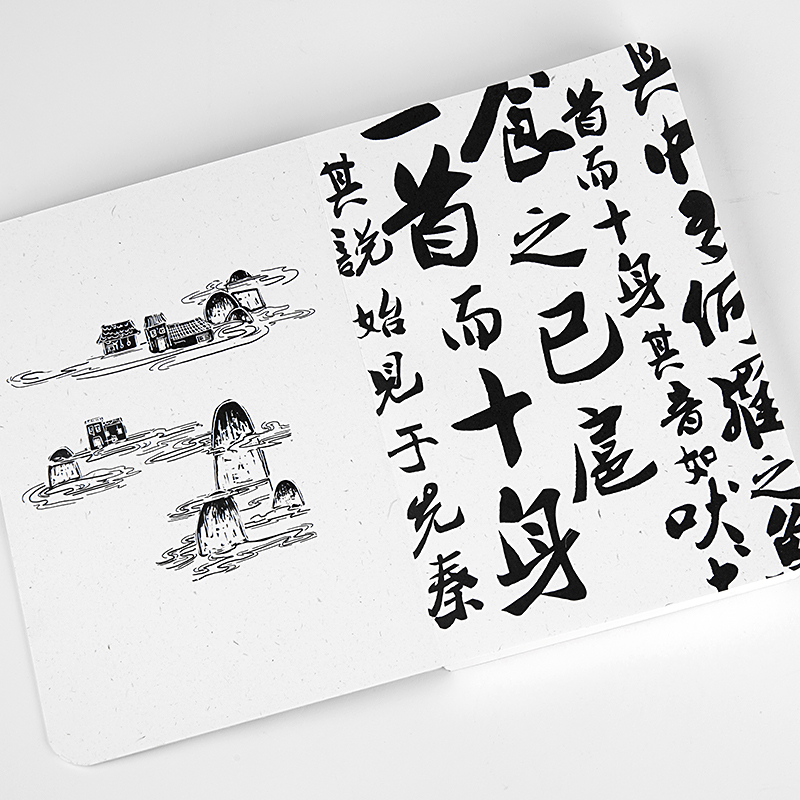 其中多何羅之
首而十身其音如吠
食之已
一首而十身
其說始見于先秦